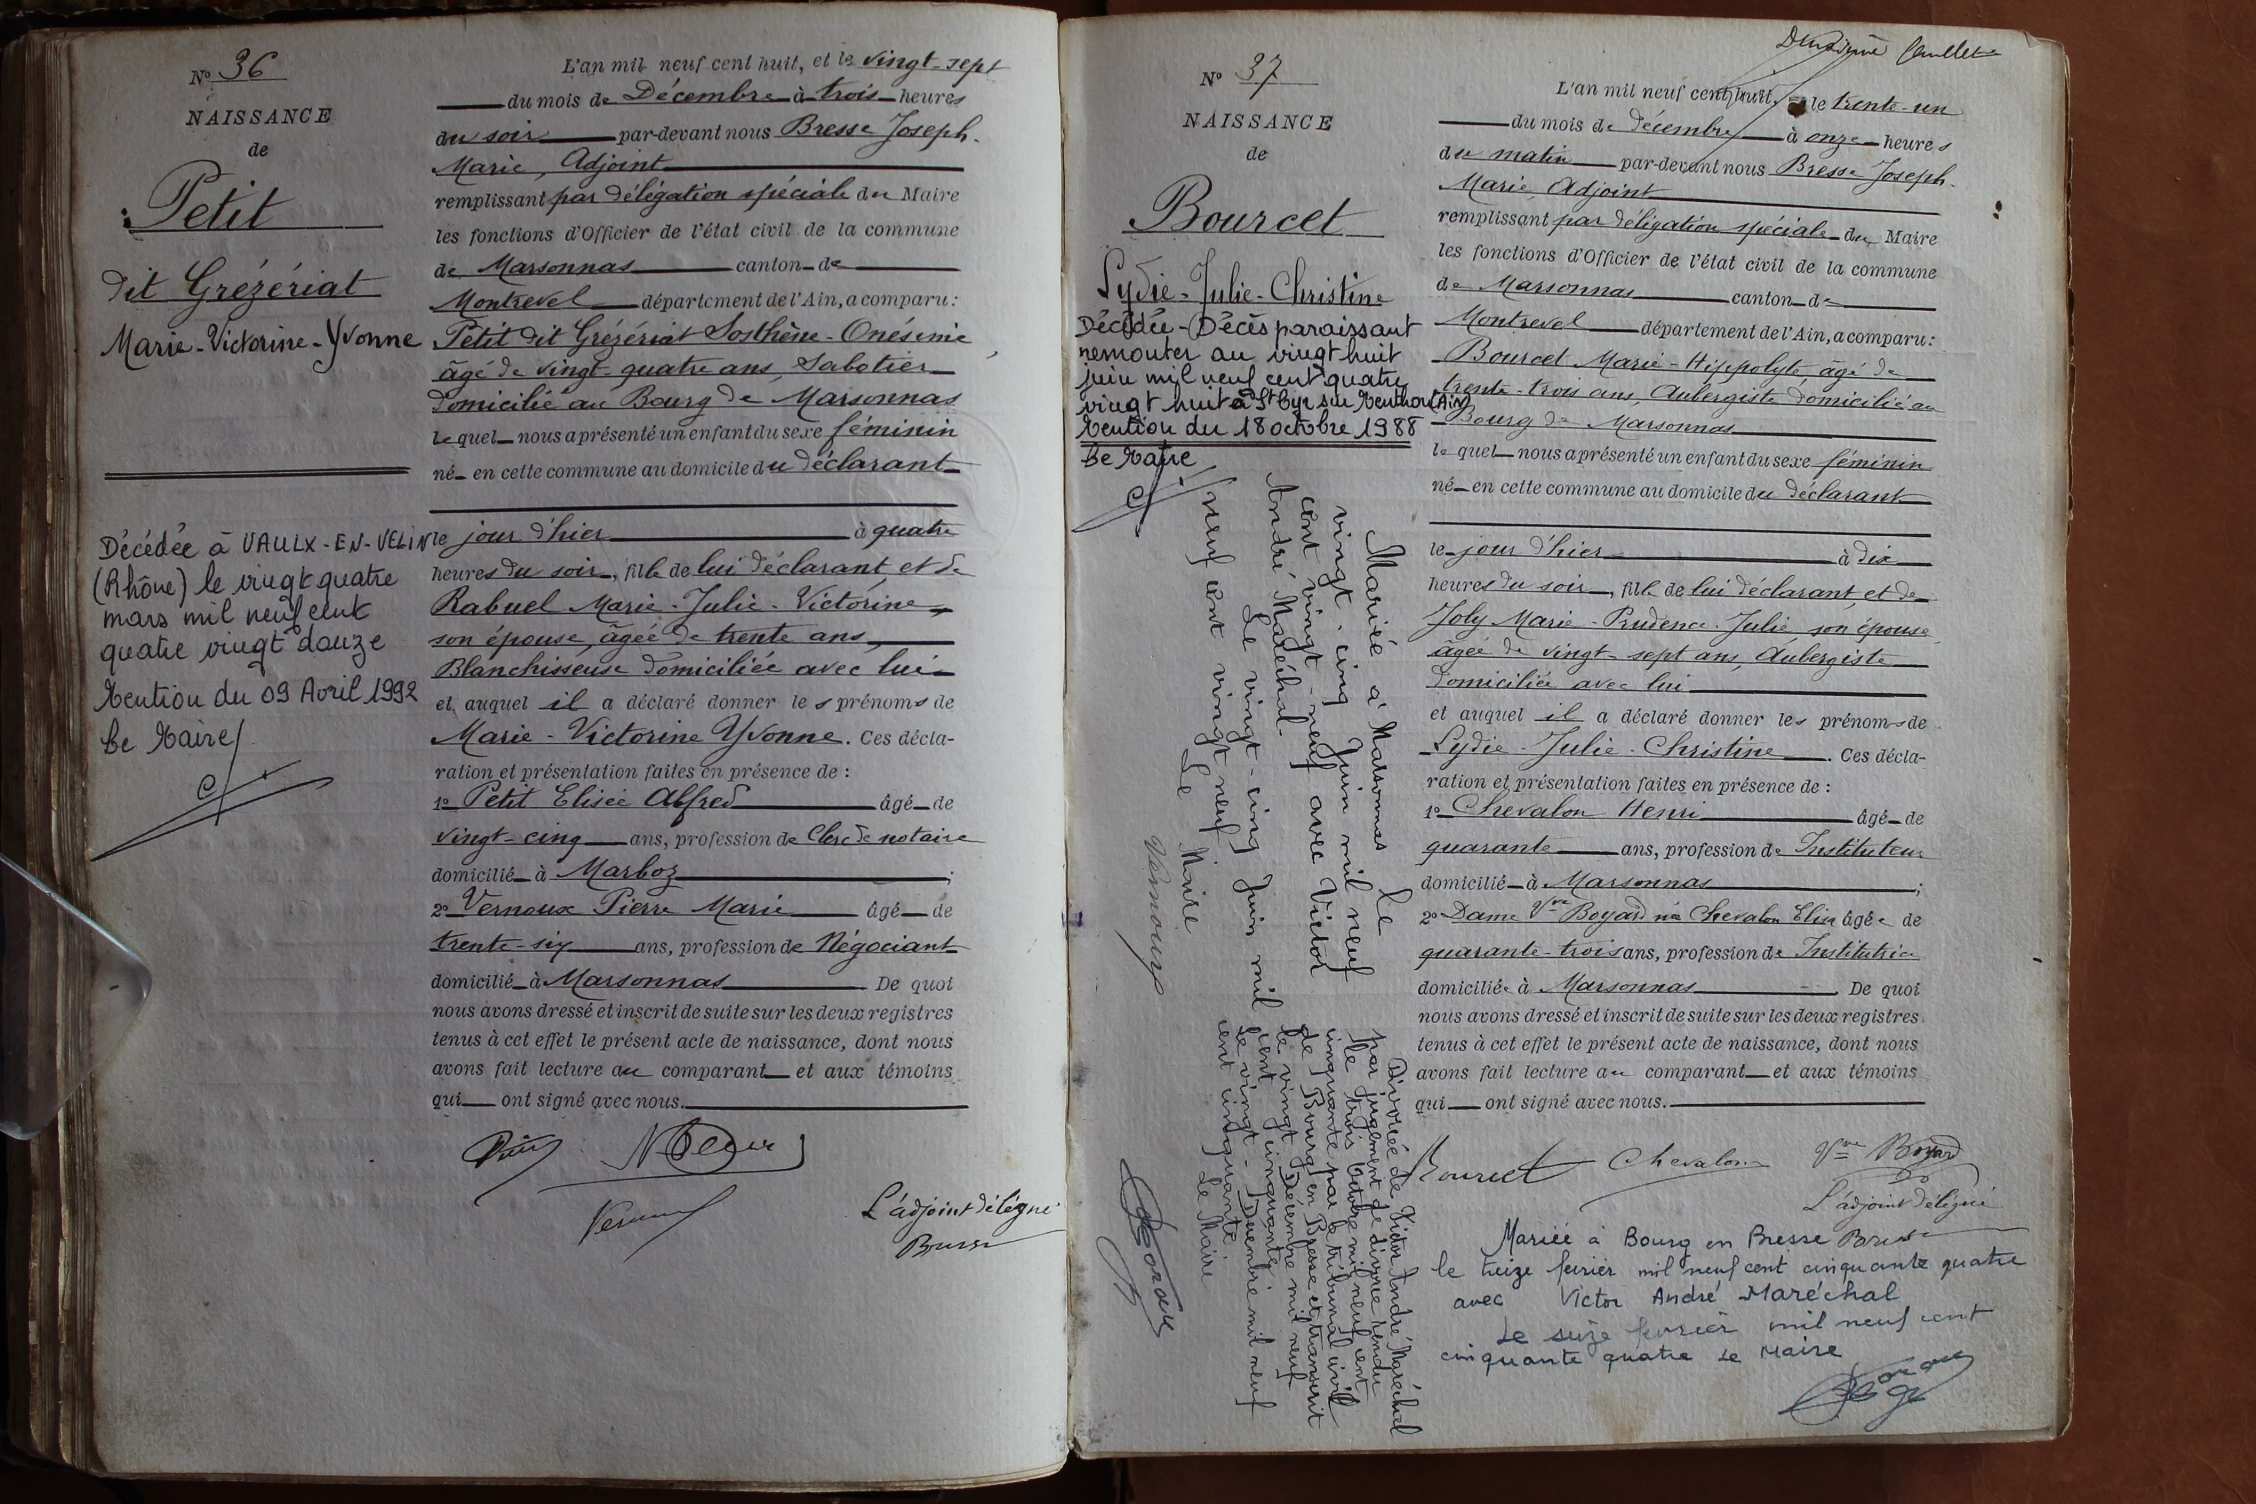 N° 36
NAISSANCE
de
Petit
dit Grézériat
Marie-Victorine-Yvonne
Décédée à VAULX-EN-VELIN
(Rhône) le vingt quatre
mars mil neuf cent
quatre vingt douze
Mention du 09 Avril 1992
Le Maire
L'an mil neuf cent huit, et le vingt-sept
du mois de Décembre à trois heures
du soir par-devant nous Bresse Joseph-
Marie, Adjoint
remplissant par délégation spéciale du Maire
les fonctions d'Officier de l'état civil de la commune
de Marsonnas canton de
Montrevel département de l'Ain, a comparu:
Petit dit Grézériat Sosthène-Onésime,
âgé de vingt-quatre ans, Sabotier
domicilié au Bourg de Marsonnas
lequel nous a présenté un enfant du sexe féminin
né en cette commune au domicile du déclarant
le jour d'hier à quatre
heures du soir, fille de lui déclarant et de
Rabuel Marie-Julie-Victorine,
son épouse, âgée de trente ans,
Blanchisseuse domiciliée avec lui
et auquel il a déclaré donner les prénoms de
Marie-Victorine Yvonne. Ces décla-
ration et présentation faites en présence de :
1° Petit Elisée Alfred âgé de
vingt-cinq ans, profession de Clerc de notaire
domicilié à Marboz ;
2° Vernoux Pierre Marie âgé de
trente-six ans, profession de Négociant
domicilié à Marsonnas De quoi
nous avons dressé et inscrit de suite sur les deux registres
tenus à cet effet le présent acte de naissance, dont nous
avons fait lecture au comparant et aux témoins
qui ont signé avec nous.
L'adjoint délégué
Bresse
Deuxième feuillet
N° 37
NAISSANCE
de
Bourcet
Lydie-Julie-Christine
Décédée-Décès paraissant
remonter au vingt huit
juin mil neuf cent quatre
vingt huit à St Cyr sur Menthon (Ain)
Mention du 18 octobre 1988
Le Maire
Mariée à Marsonnas le
vingt-cinq Juin mil neuf
cent vingt-neuf avec Victor
André Maréchal.
Le vingt-cinq Juin mil
neuf cent vingt neuf Le Maire
Divorcée de Victor André Maréchal
par jugement de divorce rendu
le trois Octobre mil neuf cent
cinquante par le tribunal civil
de Bourg en Bresse et transcrit
le vingt Décembre mil neuf
cent cinquante.
Le vingt-Décembre mil neuf
cent cinquante Le Maire
L'an mil neuf cent huit, le trente-un
du mois de décembre à onze heures
du matin par-devant nous Bresse Joseph-
Marie, Adjoint
remplissant par délégation spéciale du Maire
les fonctions d'Officier de l'état civil de la commune
de Marsonnas canton de
Montrevel département de l'Ain, a comparu:
Bourcet Marie-Hippolyte, âgé de
trente-trois ans, Aubergiste domicilié au
Bourg de Marsonnas
lequel nous a présenté un enfant du sexe féminin
né en cette commune au domicile du déclarant
le jour d'hier à dix
heures du soir, fille de lui déclarant, et de
Joly Marie-Prudence-Julie son épouse,
âgée de vingt-sept ans, Aubergiste
domiciliée avec lui
et auquel il a déclaré donner les prénoms de
Lydie-Julie-Christine. Ces décla-
ration et présentation faites en présence de :
1° Chevalon Henri âgé de
quarante ans, profession de Instituteur
domicilié à Marsonnas ;
2° Dame Vve Boyard née Chevalon Elisa âgée de
quarante-trois ans, profession de Institutrice
domiciliée à Marsonnas De quoi
nous avons dressé et inscrit de suite sur les deux registres
tenus à cet effet le présent acte de naissance, dont nous
avons fait lecture au comparant et aux témoins
qui ont signé avec nous.
Bourcet Chevalon Vve Boyard
L'adjoint délégué
Bresse
Mariée à Bourg en Bresse
le treize février mil neuf cent cinquante quatre
avec Victor André Maréchal
Le seize février mil neuf cent
cinquante quatre Le Maire